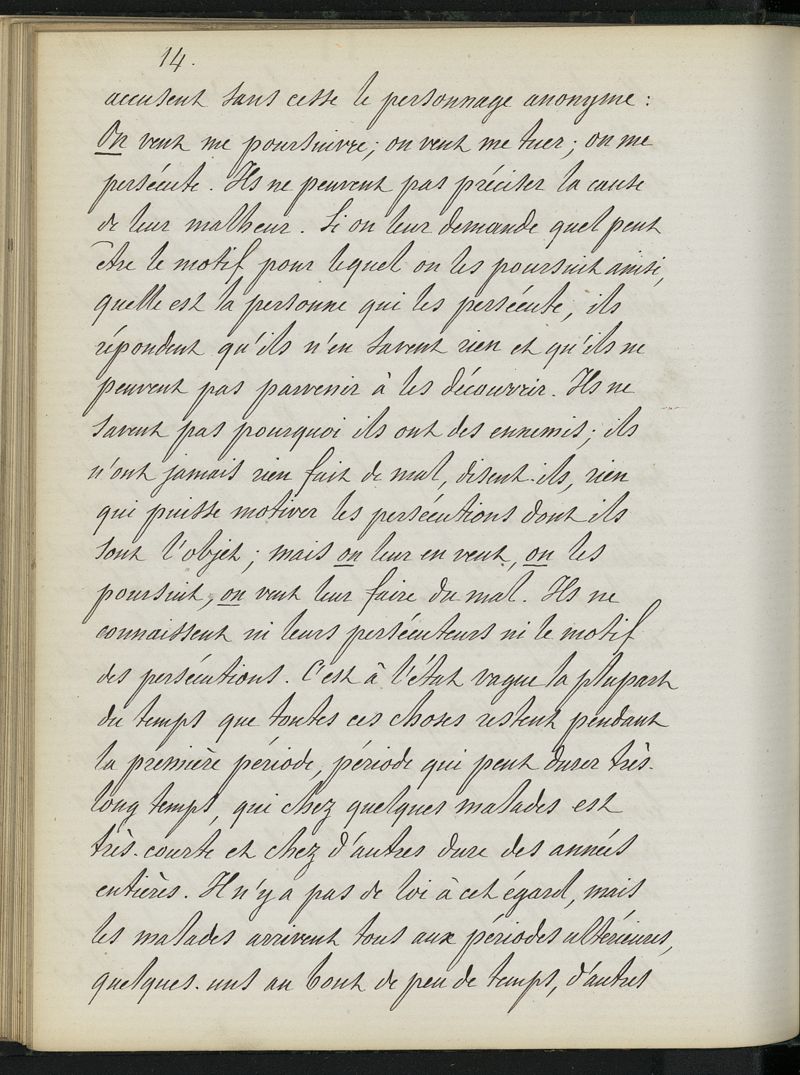 14.
accusent sans cesse le personnage anonyme :
On veut me poursuivre ; on veut me tuer ; on me
persécute . Ils ne peuvent pas préciser la cause
de leur malheur . Si on leur demande quel peut
être le motif pour lequel on les poursuit ainsi,
quelle est la personne qui les persécute, ils
répondent qu'ils n'en savent rien et qu'ils ne
peuvent pas parvenir à les découvrir . Ils ne
savent pas pourquoi ils ont des ennemis ; ils
n'ont jamais rien fait de mal, disent-ils, rien
qui puisse motiver les persécutions dont ils
sont l'objet ; mais on leur en veut, on les
poursuit, on veut leur faire du mal . Ils ne
connaissent ni leurs persécuteurs ni le motif
des persécutions . C'est à l'état vague la plupart
du temps que toutes ces choses restent pendant
la première période, période qui peut durer très-
long temps, qui chez quelques malades est
très-courte et chez d'autres dure des années
entières . Il n'y a pas de loi à cet égard, mais
les malades arrivent tous aux périodes ultérieures,
quelques-uns au bout de peu de temps, d'autres